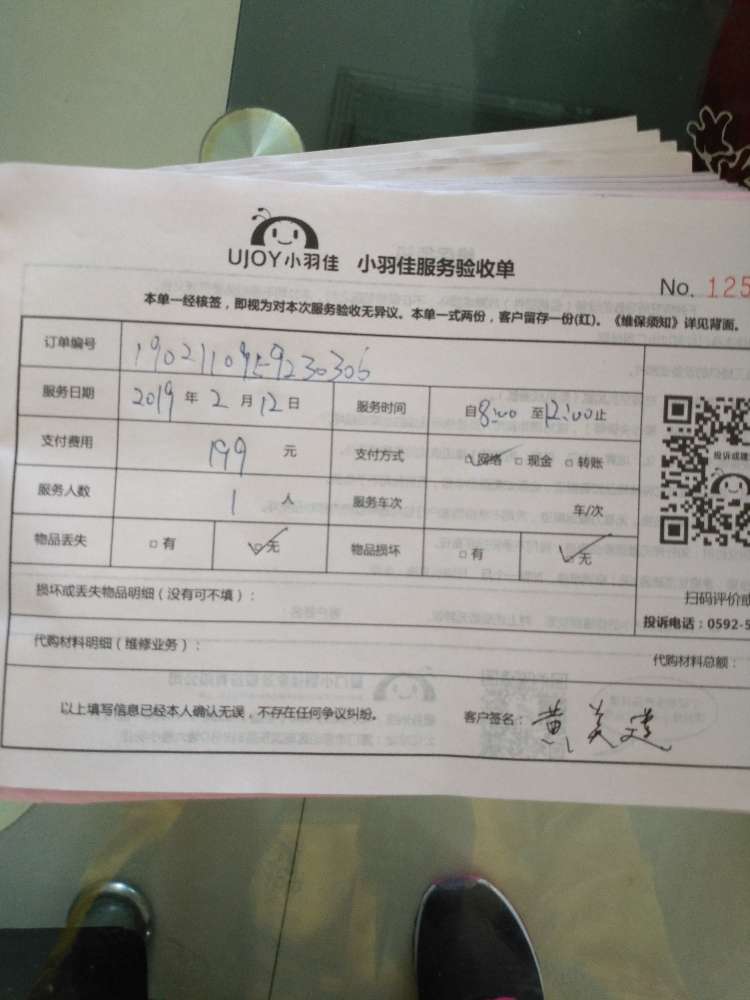 UJOY小羽佳 小羽佳服务验收单
No. 125
本单一经核签，即视为对本次服务验收无异议。本单一式两份，客户留存一份(红)。《维保须知》详见背面。
订单编号 1902110959230306
服务日期 2019 年 2 月 12 日 服务时间 自 8:00 至 12:00 止
支付费用 199 元 支付方式 ☑网络 □现金 □转账
服务人数 1 人 服务车次 车/次
物品丢失 □有 ☑无 物品损坏 □有 ☑无
损坏或丢失物品明细（没有可不填）：
扫码评价或
投诉电话：0592-5
代购材料明细（维修业务）：
代购材料总额：
以上填写信息已经本人确认无误，不存在任何争议纠纷。 客户签名：黄美建
投诉或建